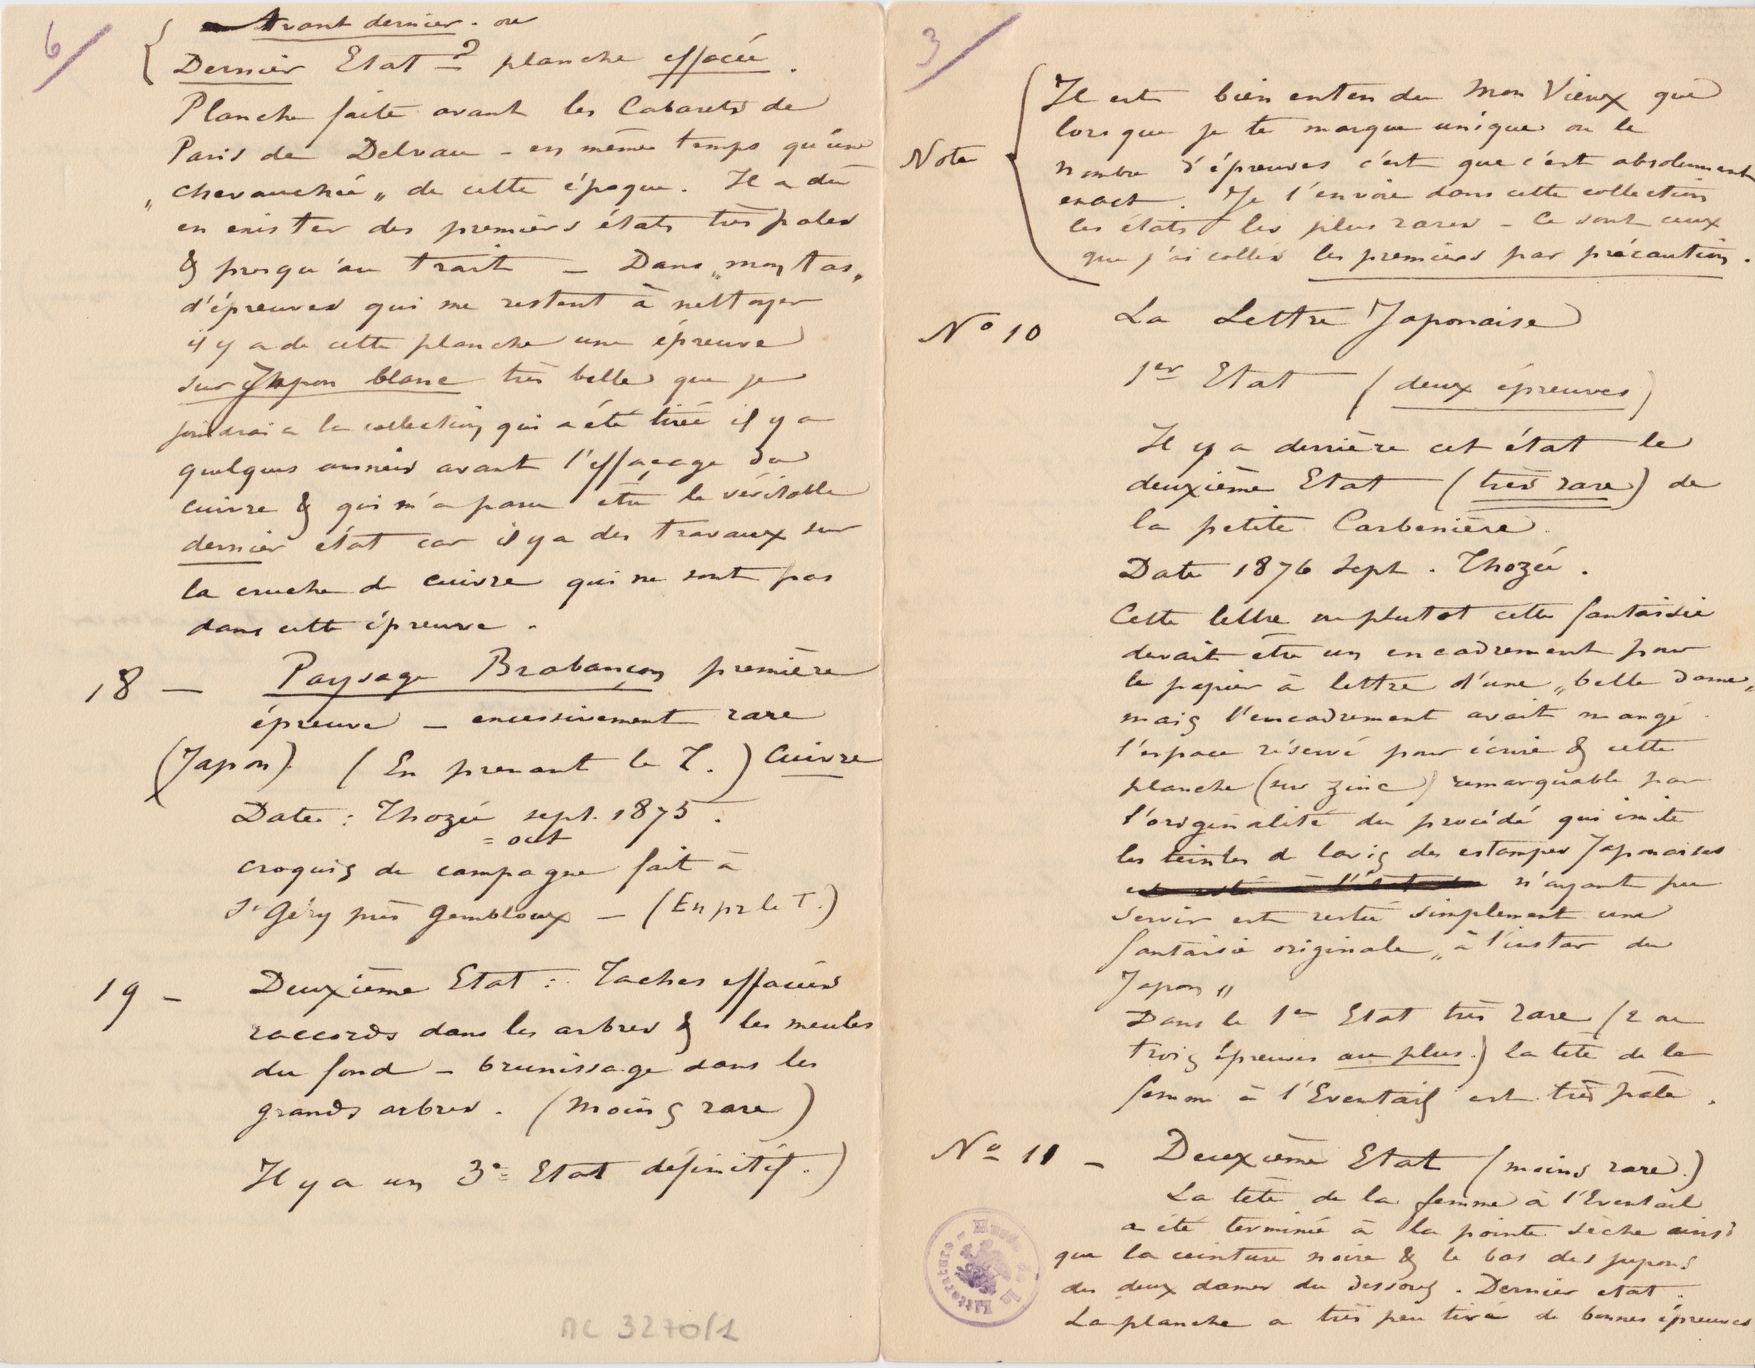 6/
Avant dernier. ou
Dernier Etat? planche effacée.
Planche faite avant les Cabarets de
Paris de Delvau - en même temps qu'une
"chevauchée" de cette époque. Il a dû
en exister des premiers états très pâles
& presqu'au trait - Dans "mon tas"
d'épreuves qui me restent à nettoyer
il y a de cette planche une épreuve
sur Japon blanc très belle que je
joindrai a la collection qui a été tirée il y a
quelques années avant l'effaçage du
cuivre & qui m'a paru être le véritable
dernier état car il y a des travaux sur
la cruche de cuivre qui ne sont pas
dans cette épreuve.
18 - Paysage Brabançon première
épreuve - excessivement rare
(Japon). (En prenant le T.) Cuivre
Date : Thozée sept. 1875.
= oct
croquis de campagne fait à
St Géry près Gembloux - (En pr le T.)
19 - Deuxième Etat : Taches effacées
raccords dans les arbres & les meules
du fond - brunissage dans les
grands arbres. (Moins rare)
Il y a un 3e Etat définitif.)
AC 3270/1
3/
Note
Il est bien entendu Mon Vieux que
lorsque je te marque unique ou le
nombre d'épreuves c'est que c'est absolument
exact. Je t'envoie dans cette collection
les états les plus rares - Ce sont ceux
que j'ai collés les premiers par précaution.
No 10 La Lettre Japonaise
1er Etat (deux épreuves)
Il y a derrière cet état le
deuxième Etat (très rare) de
la petite Carbenière.
Date 1876 Sept. Thozée.
Cette lettre ou plutot cette fantaisie
devait être un encadrement pour
le papier à lettre d'une "belle Dame"
mais l'encadrement avait mangé
l'espace réservé pour écrire & cette
planche (sur zinc) remarquable par
l'originalité du procédé qui imite
les teintes de lavis des estampes Japonaises
n'ayant pu
servir est restée simplement une
fantaisie originale "à l'instar du
Japon"
Dans le 1er Etat très rare (2 ou
trois épreuves au plus.) la tête de la
femme à l'Eventail est très pâle.
No 11 - Deuxième Etat (moins rare.)
La tête de la femme à l'Eventail
a été terminée à la pointe sèche ainsi
que la ceinture noire & le bas des jupons
des deux dames du dessous. Dernier etat.
La planche a très peu tiré de bonnes épreuves
Musée de la Littérature